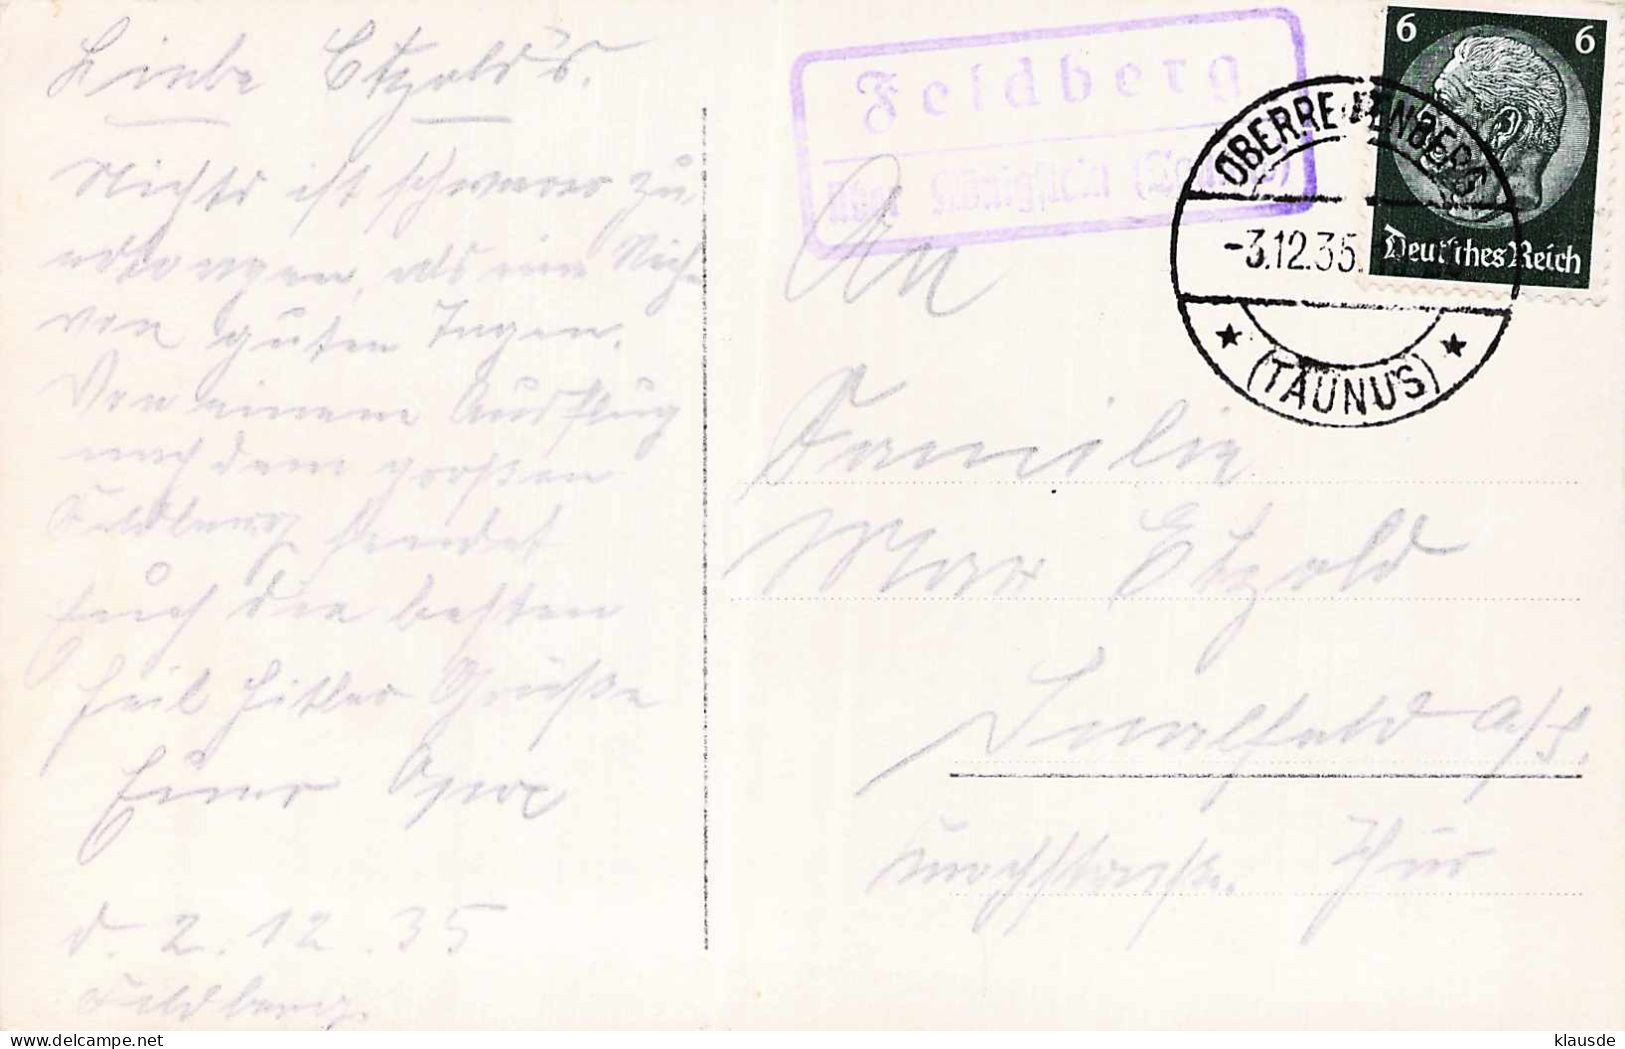 Liebe Etzold's.
Nichts ist schwerer zu
ertragen, als eine Reihe
von guten Tagen.
Von einem Ausflug
nach dem großen
Feldberg sendet
Euch die besten
Heil Hitler Grüße
Euer
d. 2.12.35
Feldberg.
Feldberg
über Königstein (Taunus)
OBERREIFENBERG
-3.12.35.
(TAUNUS)
6 6
Deutsches Reich
An
Familie
Max Etzold
Saalfeld a/S.
Thür
klausde